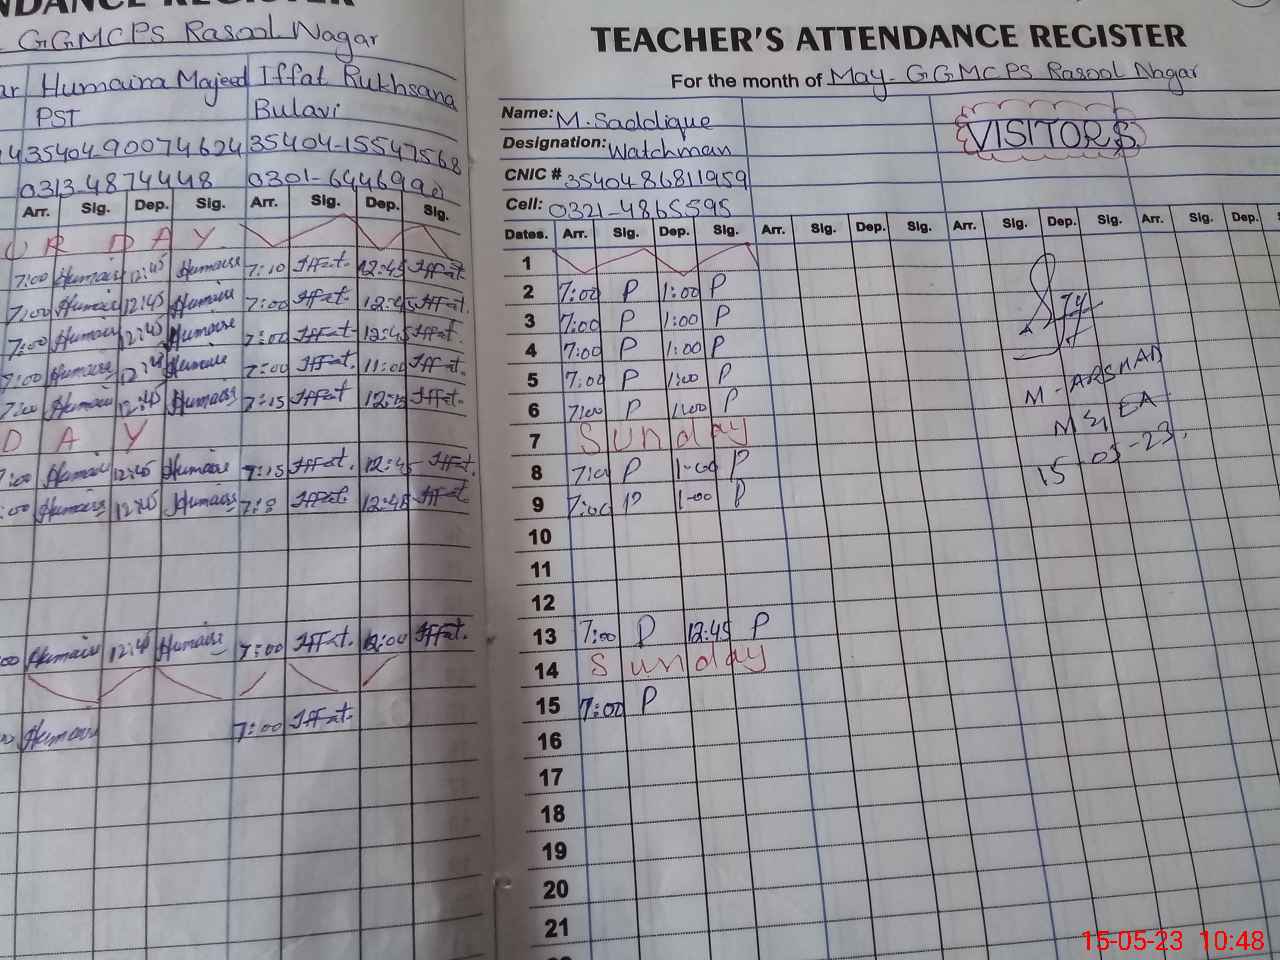 NDANCE REGISTER
GGMCPS Rasool Nagar
ar Humaira Majeed Iffat Rukhsana
PST Bulavi
435404-90074624 35404-15547568
0313-4874448 0301-644699
Arr. Sig. Dep. Sig. Arr. Sig. Dep. Sig.
U R D A Y
7:00 Humaira 12:45 Humaira 7:10 Iffat. 12:45 Iffat.
7:00 Humaira 12:45 Humaira 7:00 Iffat. 12:45 Iffat.
7:00 Humaira 12:45 Humaira 7:00 Iffat. 12:45 Iffat.
7:00 Humaira Humaira 7:00 Iffat. 11:00 Iffat.
7:00 Humaira 12:45 Humaira 7:15 Iffat Iffat.
D A Y
7:00 Humaira 12:45 Humaira 7:15 Iffat. 12:45 Iffat.
:00 Humaira 12:45 Humaira Iffat. 12:45 Iffat.
00 Humaira Humaira 7:00 Iffat. 12:00 Iffat.
Humaira 7:00 Iffat.
TEACHER'S ATTENDANCE REGISTER
For the month of May- GGMCPS Rasool Nagar
Name: M. Saddique VISITORS
Designation: Watchman
CNIC # 35404-86811959
Cell: 0321-4865595
Dates. Arr. Sig. Dep. Sig. Arr. Sig. Dep. Sig. Arr. Sig. Dep. Sig. Arr. Sig. Dep.
1
2 7:00 P 1:00 P
3 7:00 P 1:00 P
4 7:00 P 1:00 P
5 7:00 P 1:00 P
6 7:00 P 1:00 P
7 Sunday
8 7:00 P 1-00 P
9 7:00 P 1-00 P
10
11
12
13 7:00 P 12:45 P
14 Sunday
15 7:00 P
16
17
18
19
20
21
M-ARSHAD
MEA
15-05-23.
15-05-23 10:48